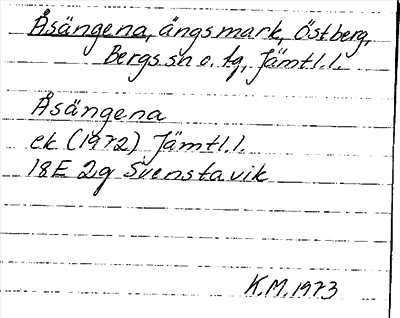 Åsängena, ängsmark, Östberg,
Bergs sn o. tg, Jämtl.l.
Åsängena
ek (1972) Jämtl.l.
18E 2g Svenstavik
K.M. 1973